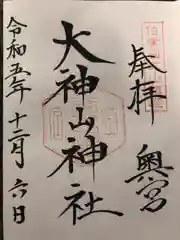 奉拝
奥宮
大神山神社
令和五年十二月六日